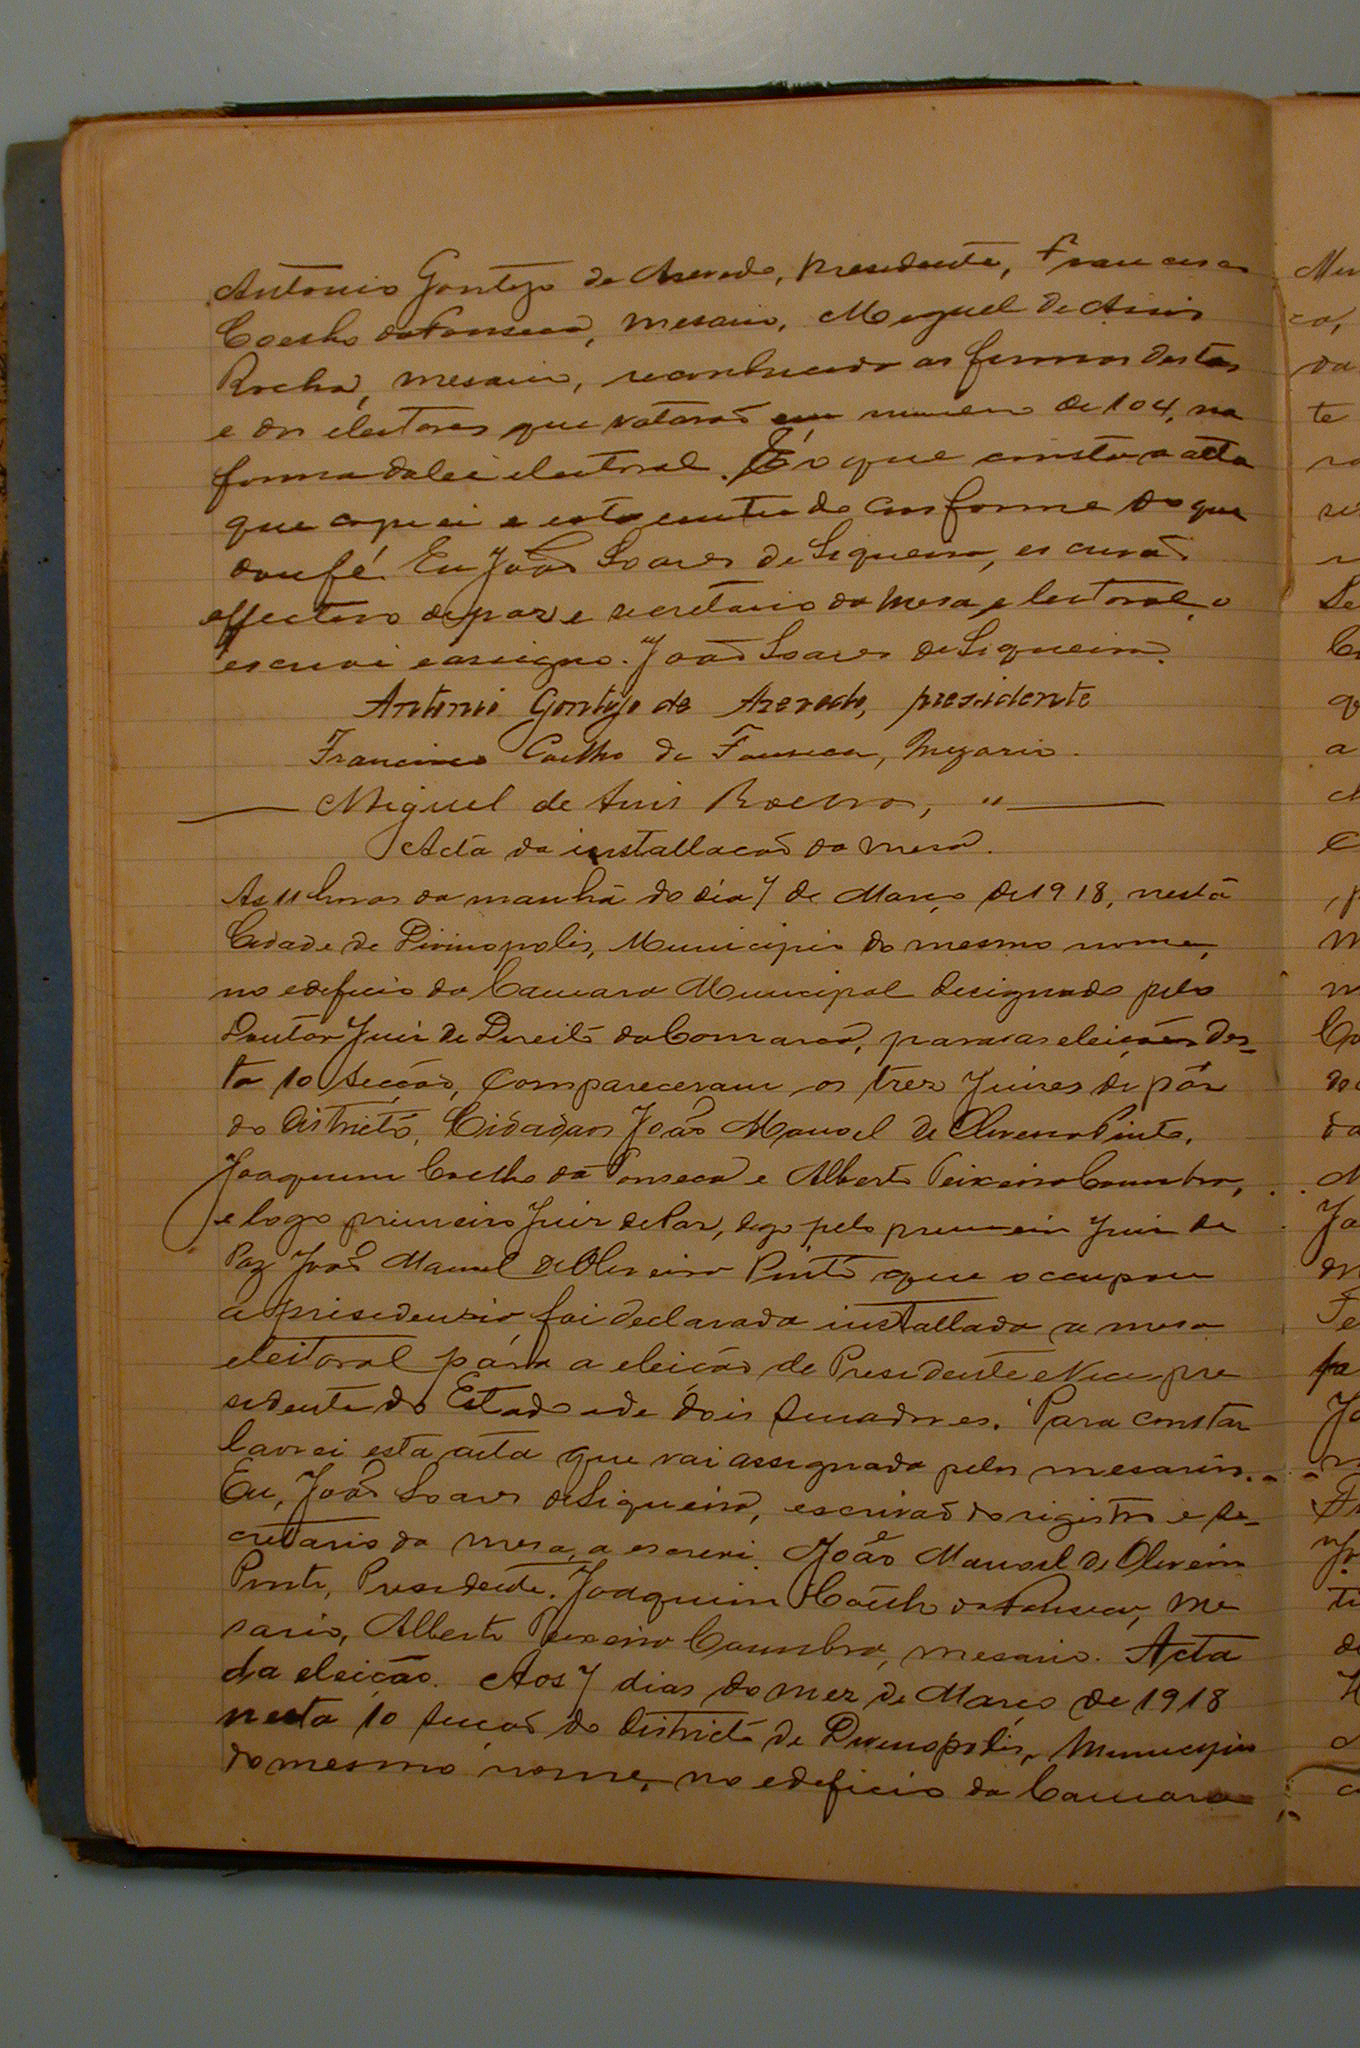 Antonio Gontijo de Azevedo, presidente, Francisco
Coelho da Fonseca, mesario, Miguel de Assis
Rocha, mesario, reconhecendo as firmas destes
e dos eleitores que votaraõ em numero de 104, na
forma da lei eleitoral. É o que consta a acta
que copiei e esta conforme do que
dou fé. Eu João Soares de Siqueira, escrivaõ
effectivo de paz e secretario da mesa eleitoral, o
escrevi e assigno. João Soares de Siqueira.
Antonio Gontijo de Azevedo, presidente
Francisco Coelho da Fonseca, Mezario.
Miguel de Assis Rocha, "
Acta da installacaõ da mesa.
As 11 horas da manhã do dia 7 de Março de 1918, nesta
Cidade de Divinopolis, Municipio do mesmo nome,
no edeficio da Camara Municipal designado pelo
Doutor Juiz de Direito da Comarca, para as eleições des-
ta 1o secção, compareceram os trez Juizes de páz
do districto, Cidadaos João Manoel de Oliveira Pinto,
Joaquim Coelho da Fonseca e Alberto Teixeira Coimbra,
e logo primeiro Juiz de Paz, digo pelo primeiro Juiz de
Paz João Manoel de Oliveira Pinto que occupou
a presidencia foi declarada installada a mesa
eleitoral pára a eleicão de Presidente e Vice pre
sidente do Estado e de dois senadores. Para constar
lavrei esta acta que vai assignada pelos mesarios.
Eu, João Soares de Siqueira, escrivaõ do rigistro e se-
cretario da mesa, a escrevi. João Manoel de Oliveira
Pinto, Presidente. Joaquim Coelho da Fonseca, me
sario, Alberto Teixeira Coimbra, mesario. Acta
da eleicão. Aos 7 dias do mez de Março de 1918
nesta 1o seccaõ do districto de Divinopolis, Municipio
do mesmo nome, no edeficio da Camara